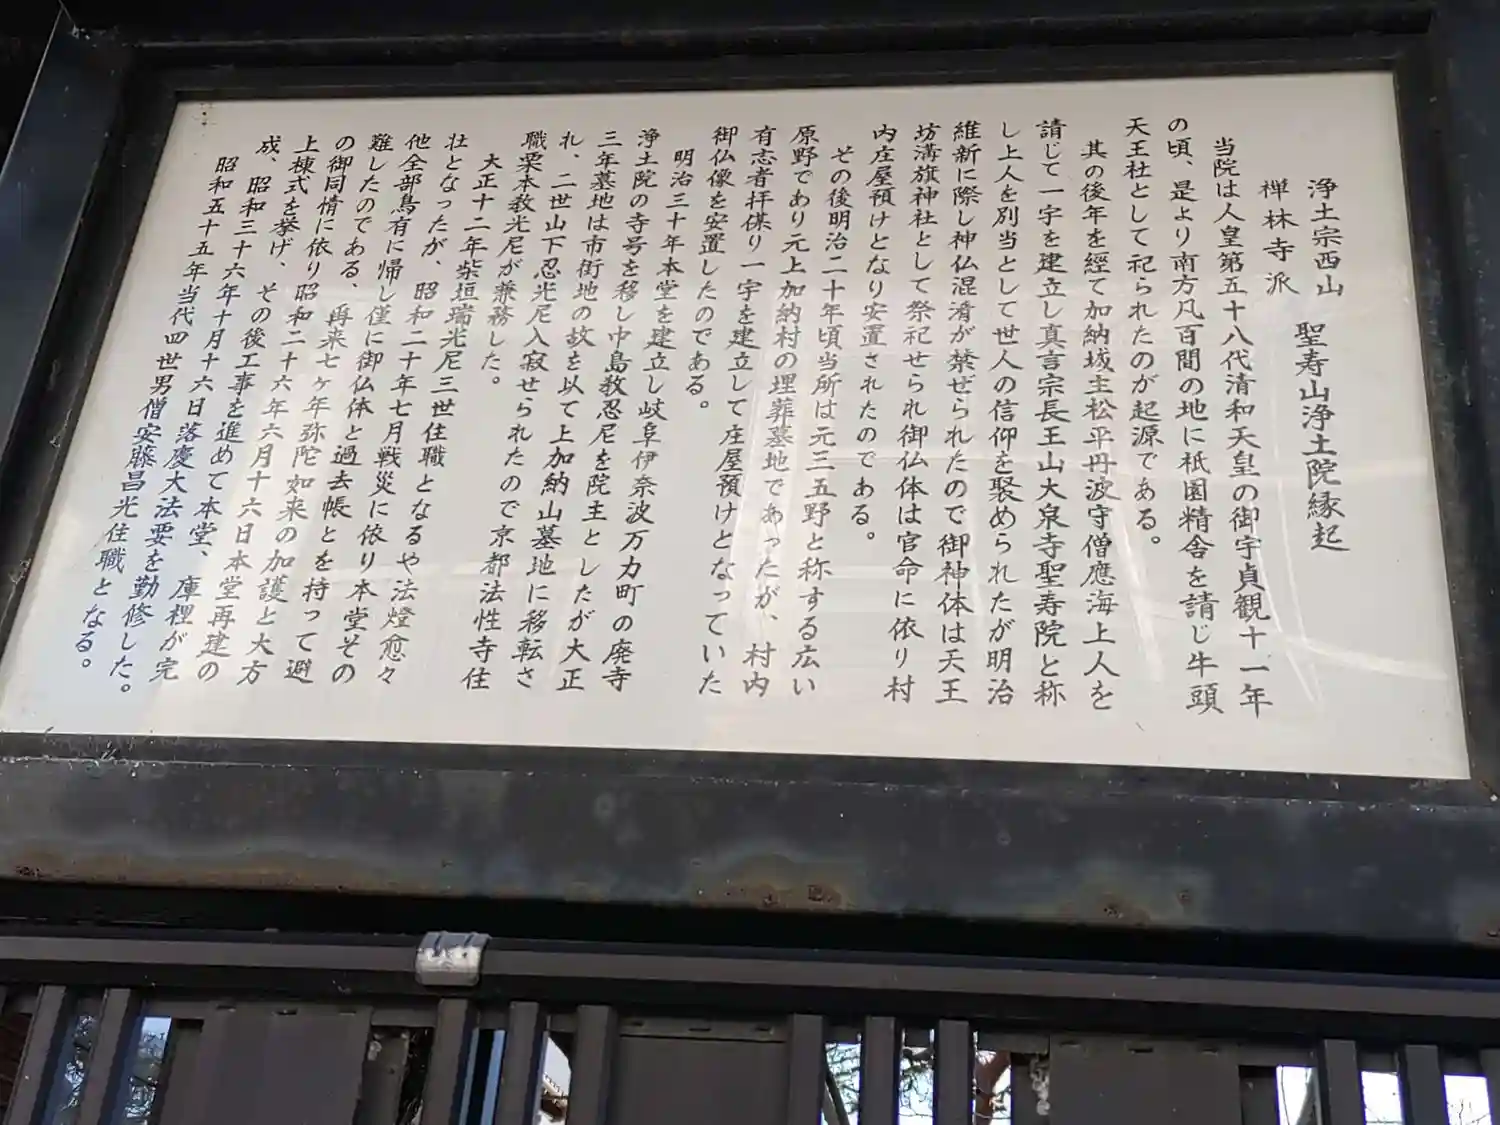 浄土宗西山
禅林寺派
聖寿山浄土院縁起
当院は人皇第五十八代清和天皇の御宇貞観十一年
の頃、是より南方凡百間の地に祇園精舎を請じ牛頭
天王社として祀られたのが起源である。
其の後年を經て加納城主松平丹波守僧應海上人を
請じて一宇を建立し真言宗長王山大泉寺聖寿院と称
し上人を別当として世人の信仰を聚められたが明治
維新に際し神仏混淆が禁ぜられたので御神体は天王
坊溝旗神社として祭祀せられ御仏体は官命に依り村
内庄屋預けとなり安置されたのである。
その後明治二十年頃当所は元三五野と称する広い
原野であり元上加納村の埋葬墓地であったが、村内
有志者拝僕り一宇を建立して庄屋預けとなっていた
御仏像を安置したのである。
明治三十年本堂を建立し岐阜伊奈波万力町の廃寺
浄土院の寺号を移し中島教忍尼を院主としたが大正
三年墓地は市街地の故を以て上加納山墓地に移転さ
れ、二世山下忍光尼入寂せられたので京都法性寺住
職栗本教光尼が兼務した。
大正十二年柴垣瑞光尼三世住職となるや法燈愈々
壮となったが、昭和二十年七月戦災に依り本堂その
他全部烏有に帰し僅に御仏体と過去帳とを持って避
難したのである、再来七ヶ年弥陀如来の加護と大方
の御同情に依り昭和二十六年六月十六日本堂再建の
上棟式を挙げ、その後工事を進めて本堂、庫裡が完
成、昭和三十六年十月十六日落慶大法要を勤修した。
昭和五十五年当代四世男僧安藤昌光住職となる。